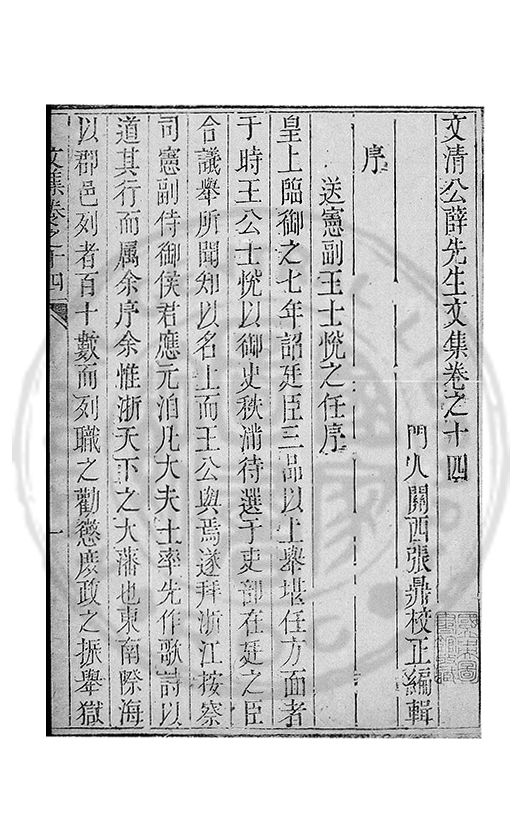 文清公薛先生文集卷之十四
門人關西張鼎校正編輯
序
送憲副王士悅之任序
皇上臨御之七年詔廷臣三品以上舉堪任方面者
于時王公士悅以御史秩滿待選于吏部在廷之臣
合議舉所聞知以名上而王公與焉遂拜浙江按察
司憲副侍御侯君應元洎凡大夫士率先作歌詩以
道其行而屬余序余惟浙天下之大藩也東南際海
以郡邑列者百十數而列職之勸懲庶政之振舉獄
文集卷之十四
一